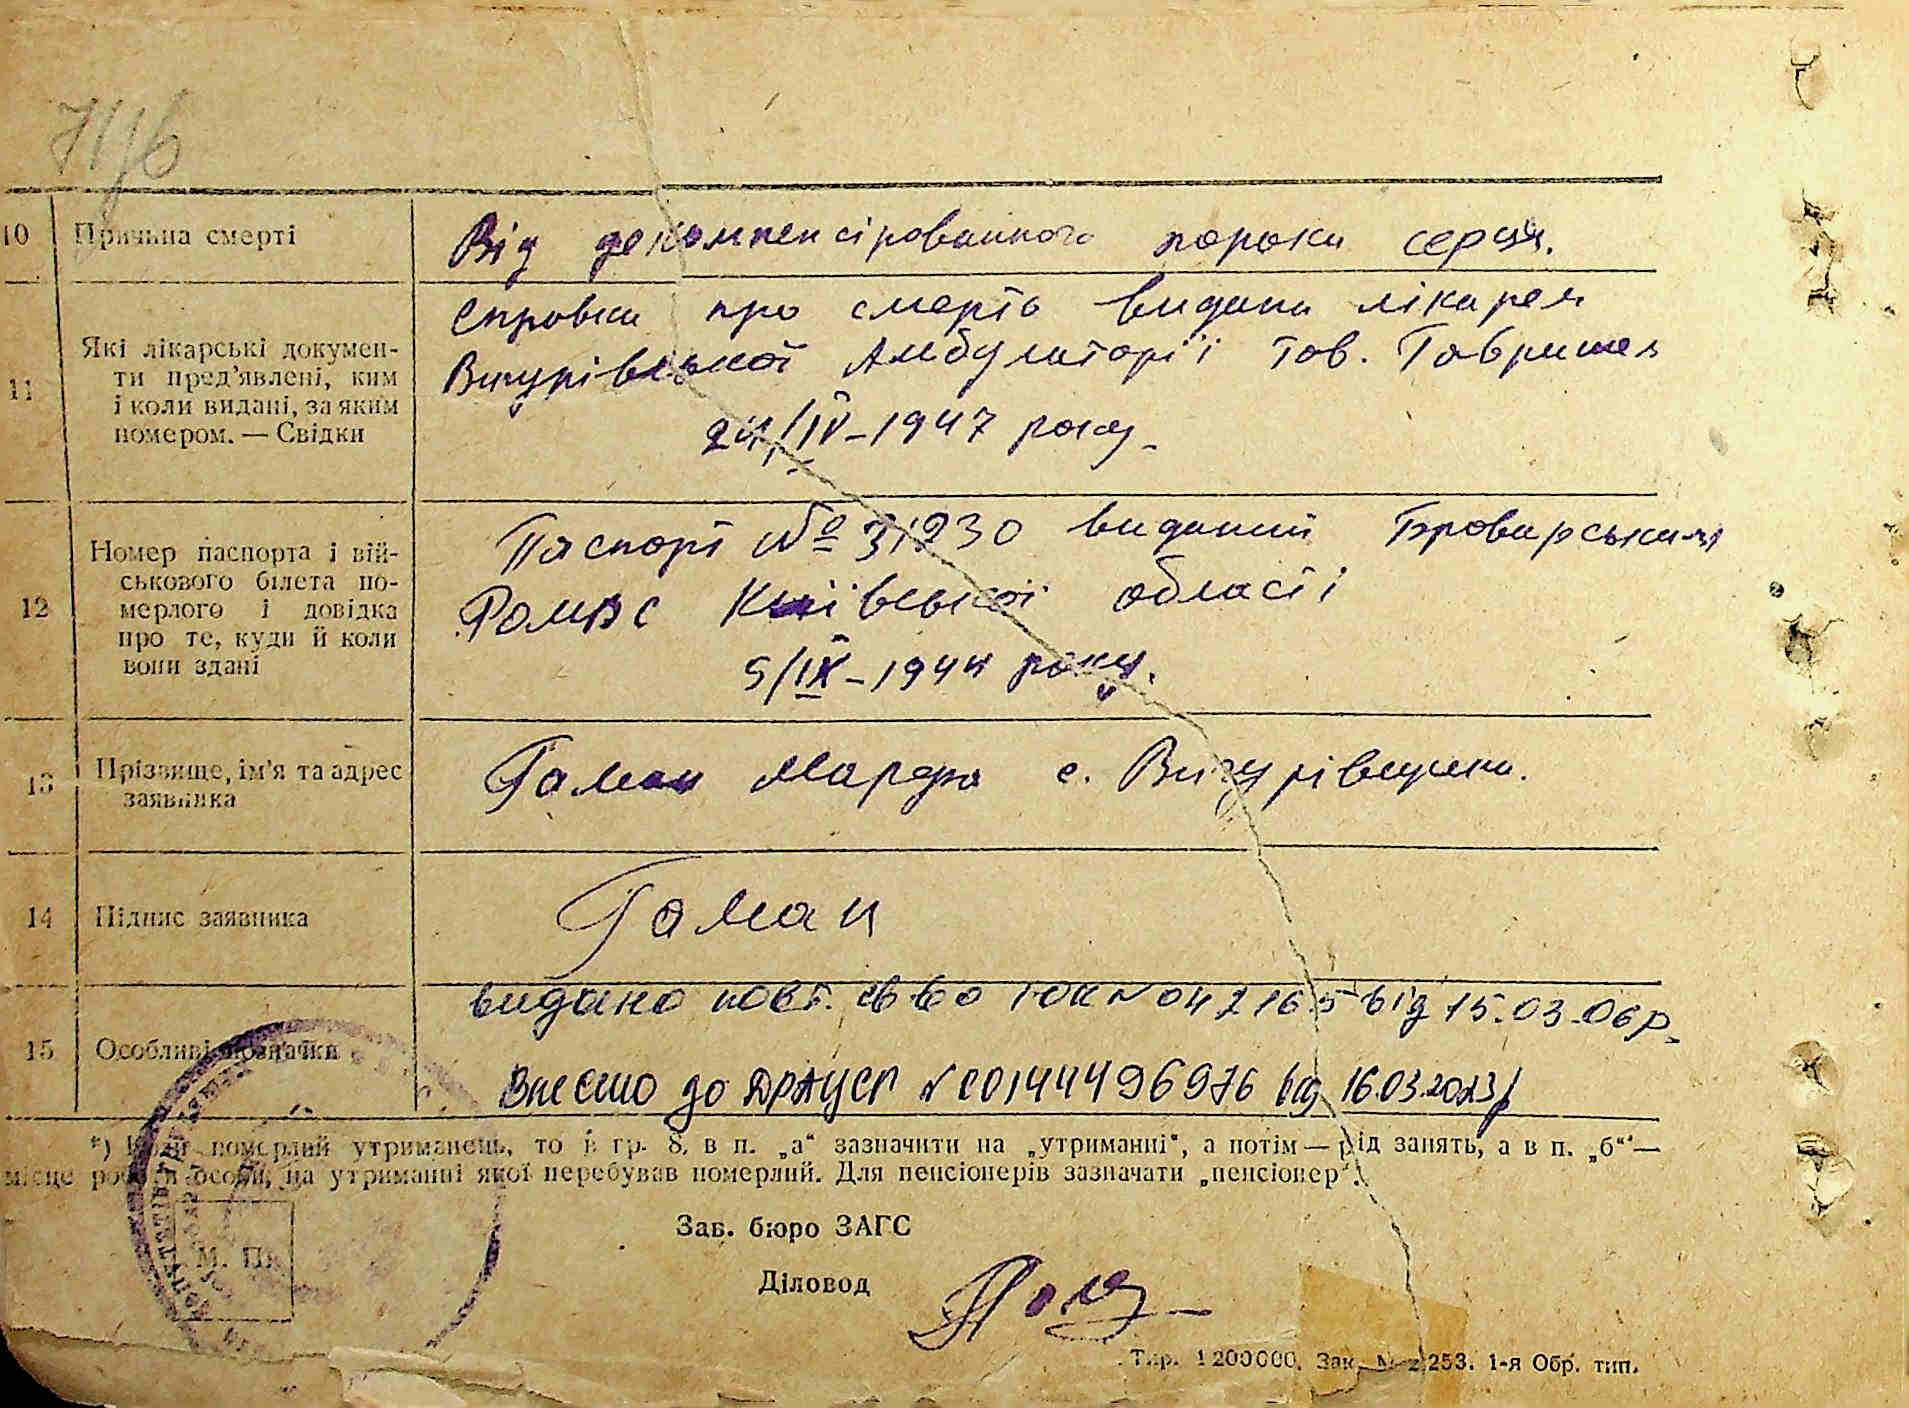 71/б
10 Причина смерті
Від декомпенсірованного порока серця.
11 Які лікарські докумен-
ти пред'явлені, ким
і коли видані, за яким
номером. — Свідки
Справка про смерть видана лікарем
Вигурівської Амбулаторії тов.
24/IV-1947 року.
12 Номер паспорта і вій-
ськового білета по-
мерлого і довідка
про те, куди й коли
вони здані
Паспорт № 31230 виданий Броварським
Київської області
5/IX-1944 року.
13 Прізвище, ім'я та адрес
заявника
Гаман Марфа с. Вигурівщина.
14 Підпис заявника
Гаман
видано повт. св во І-ОК № 042165 від 15.03.06р.
15 Особливі позначки
Внесено до ДРАЦСГ № 00144496976 від 16.03.2023р
*) Якщо померлий утриманець, то в гр. 8, в п. „а“ зазначити на „утриманні“, а потім — рід занять, а в п. „б“ —
місце роботи особи, на утриманні якої перебував померлий. Для пенсіонерів зазначати „пенсіонер“.
Зав. бюро ЗАГС
М. П.
Діловод
Тир. 1200000. Зак. № 2253. 1-я Обр. тип.